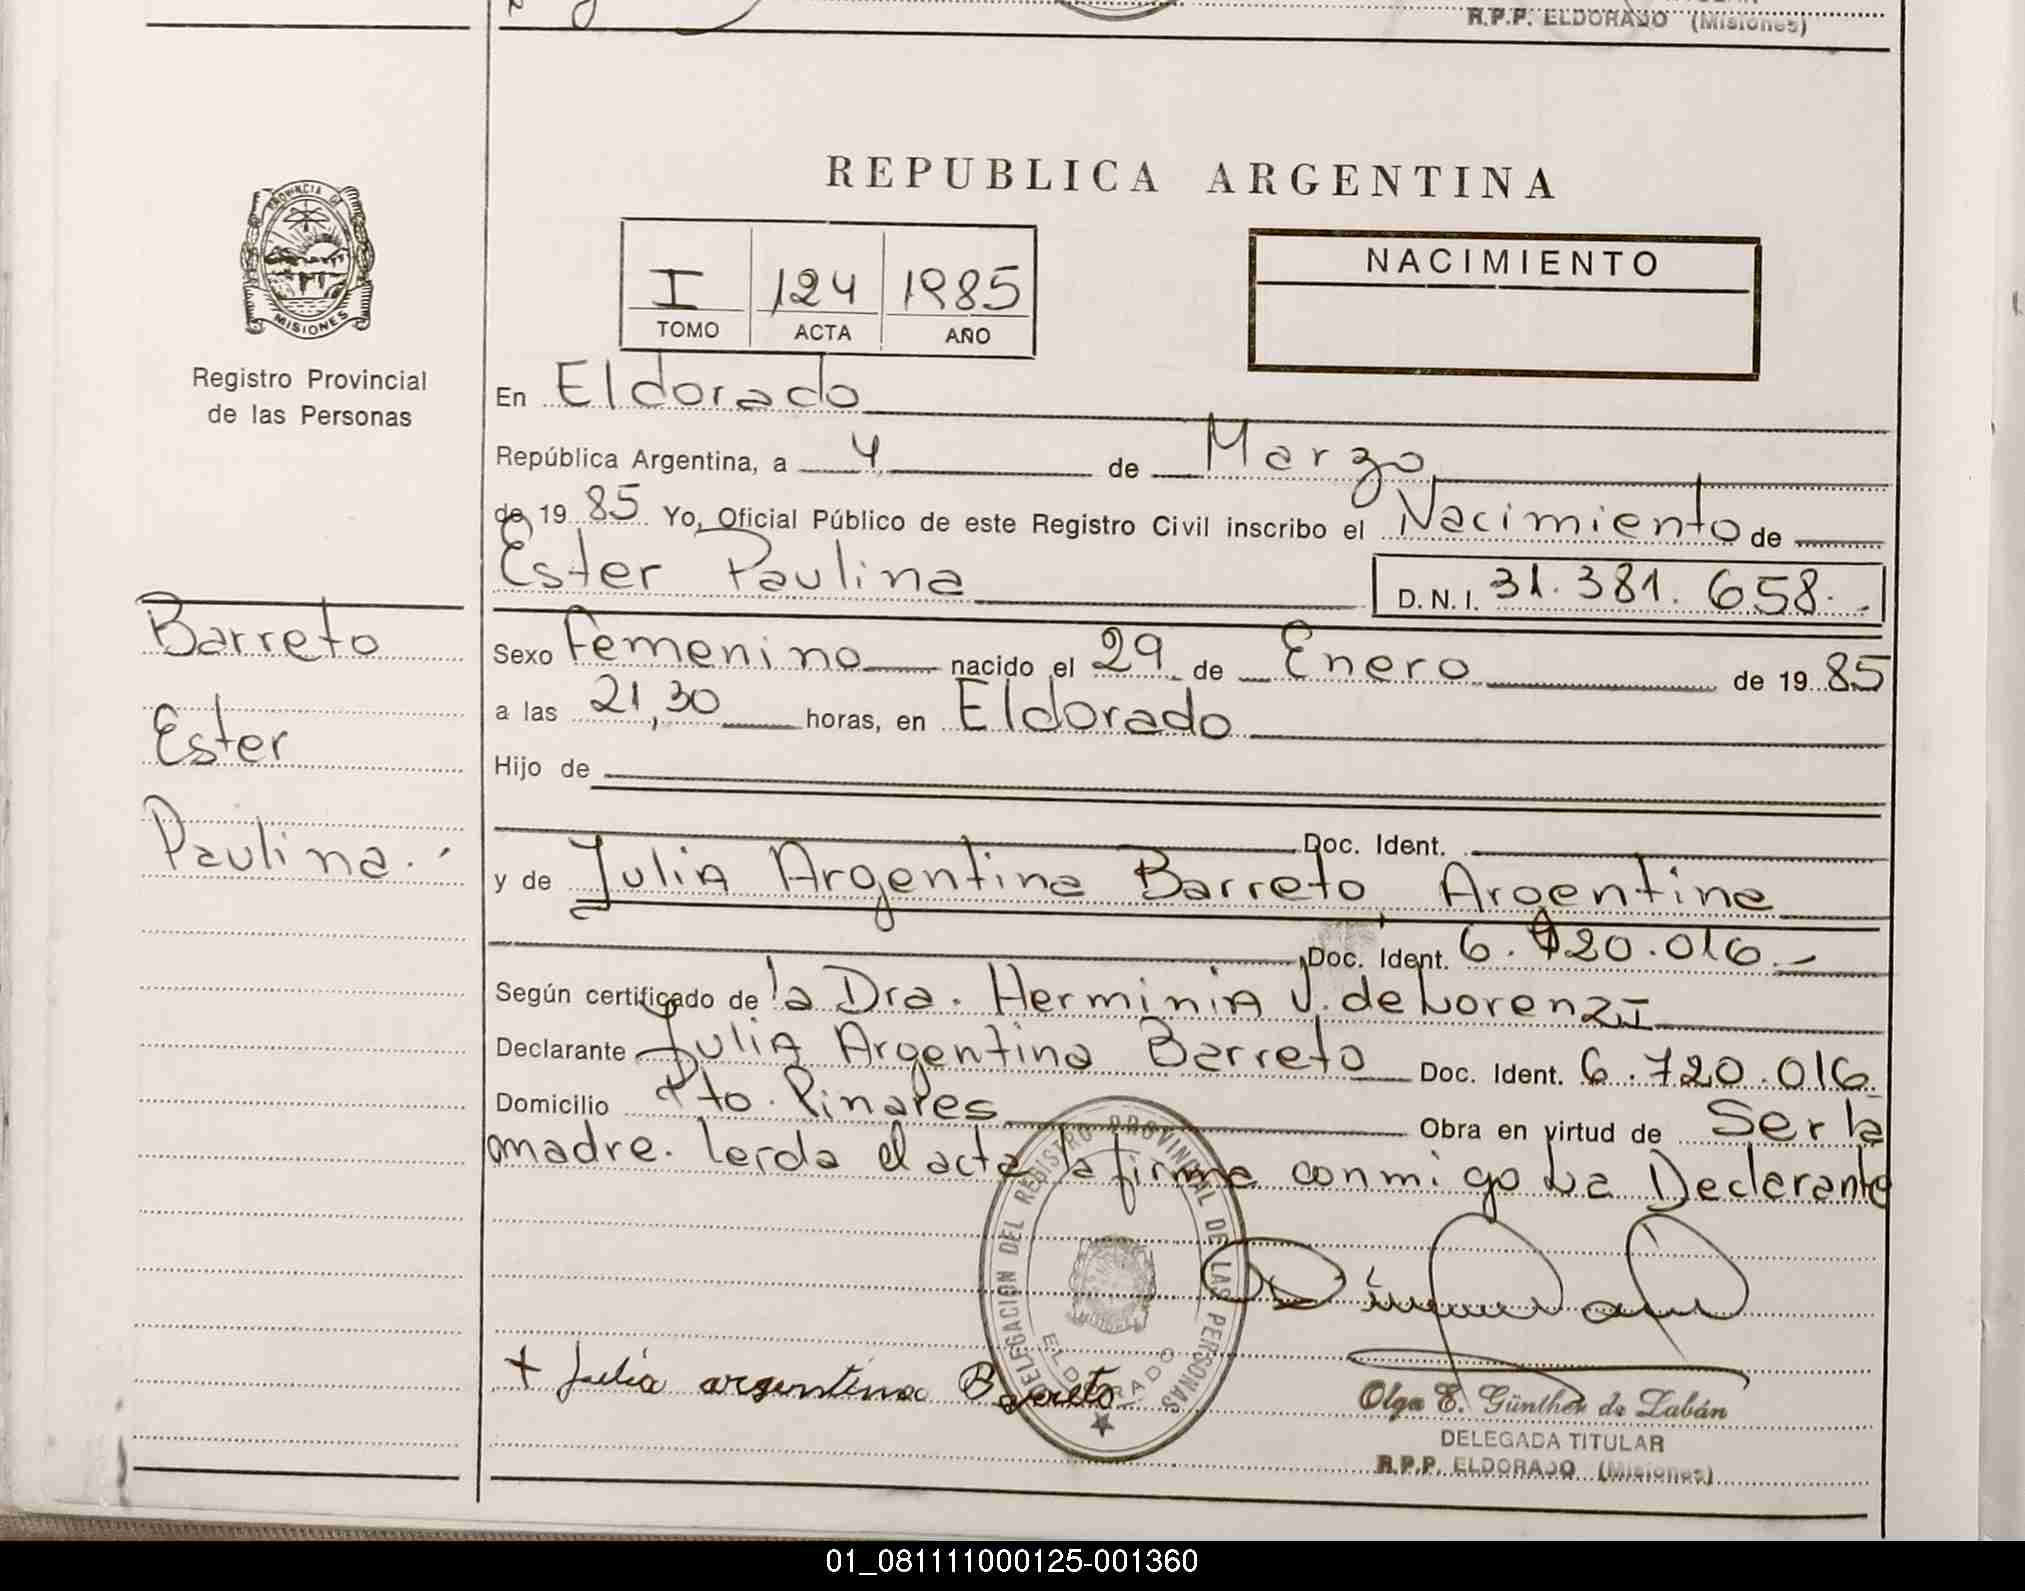 R.P.P. ELDORADO (Misiones)
PROVINCIA DE
MISIONES
Registro Provincial
de las Personas
Barreto
Ester
Paulina.
REPUBLICA ARGENTINA
I 124 1985
TOMO ACTA AÑO
NACIMIENTO
En Eldorado
República Argentina, a 4 de Marzo
de 1985 Yo, Oficial Público de este Registro Civil inscribo el Nacimiento de
Ester Paulina D.N.I. 31.381.658.
Sexo Femenino nacido el 29 de Enero de 1985
a las 21,30 horas, en Eldorado
Hijo de
Doc. Ident.
y de Julia Argentina Barreto, Argentina
Doc. Ident. 6.720.016.
Según certificado de la Dra. Herminia V. de Lorenzi
Declarante Julia Argentina Barreto Doc. Ident. 6.720.016.
Domicilio Pto. Pinares Obra en virtud de Ser la
madre. Leida el acta la firma conmigo La Declarante
DELEGACION DEL REGISTRO PROVINCIAL DE LAS PERSONAS
ELDORADO
+ Julia argentina Barreto
Olga E. Günther de Labán
DELEGADA TITULAR
R.P.P. ELDORADO (Misiones)
01_081111000125-001360